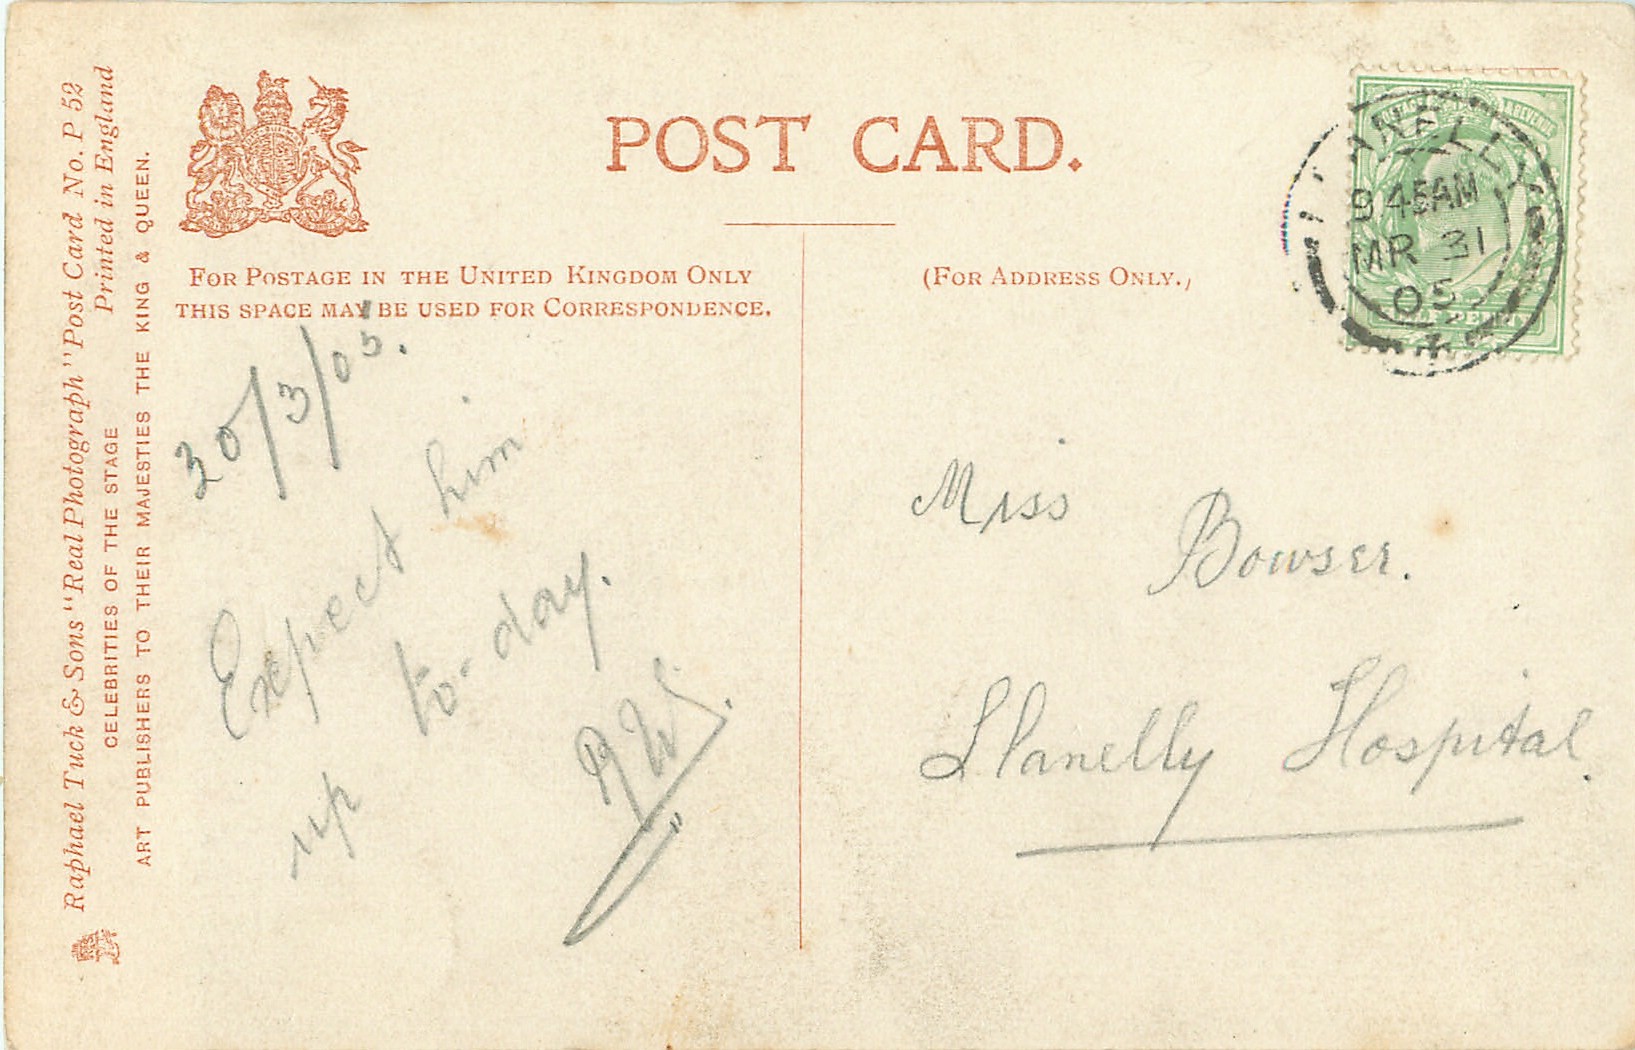 Raphael Tuck & Sons "Real Photograph" Post Card No. P 52
Printed in England
CELEBRITIES OF THE STAGE
ART PUBLISHERS TO THEIR MAJESTIES THE KING & QUEEN.
POST CARD.
FOR POSTAGE IN THE UNITED KINGDOM ONLY
THIS SPACE MAY BE USED FOR CORRESPONDENCE.
(FOR ADDRESS ONLY.)
POSTAGE & REVENUE
LLANELLY
9 45AM
MR 31
05
HALF PENNY
30/3/05.
Expect him
up to-day.
Miss
Bowser.
Llanelly Hospital.